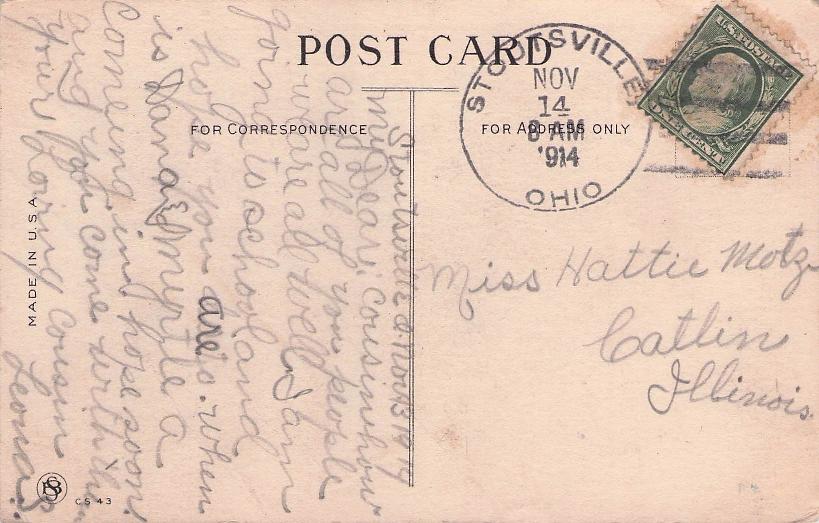 POST CARD
FOR CORRESPONDENCE
FOR ADDRESS ONLY
STOUTSVILLE
NOV
14
8 AM
1914
OHIO
U.S. POSTAGE
ONE CENT
Stoutsville O. Nov 13 1914
My Dear Cousin how
are all of you people
we are all well I am
going to school and
hope you are to. when
is Dana & Myrtle a
comeing ind hope soon.
and you come with them
your Loving Cousin
Leona.
Miss Hattie Motz
Catlin
Illinois.
MADE IN U.S.A.
CS 43